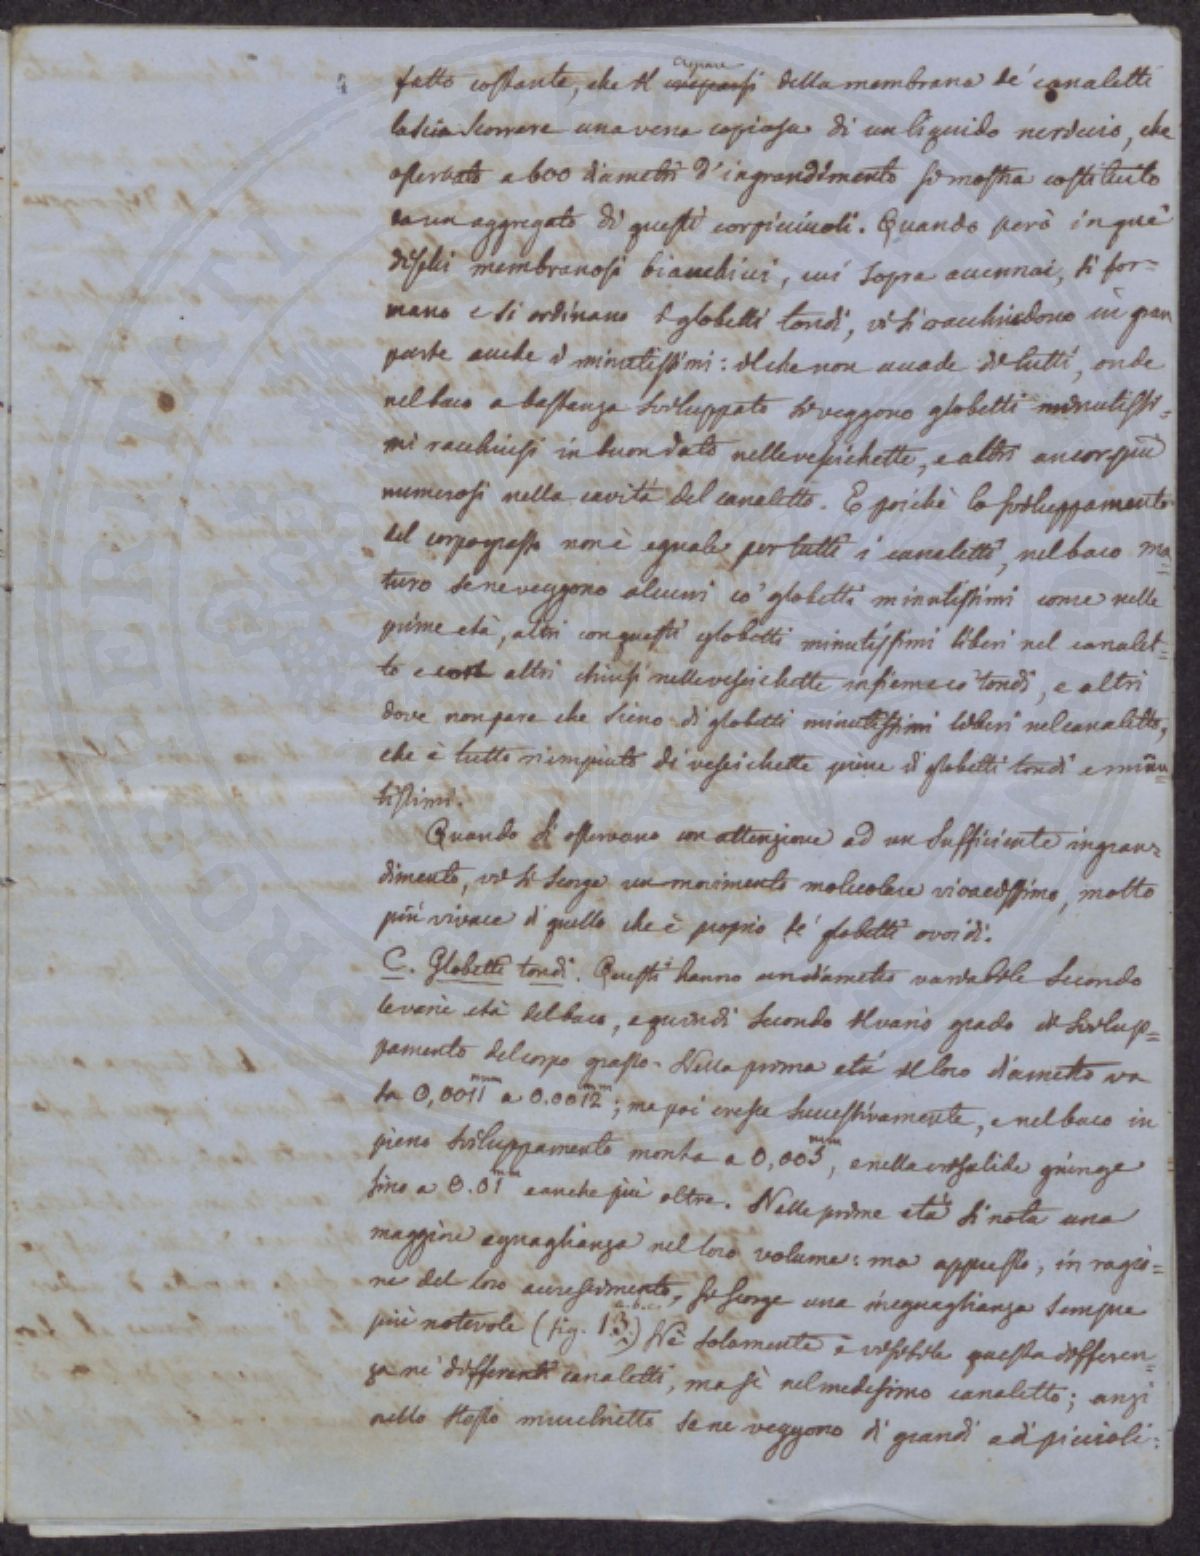 crepare
fatto costante, che il creparsi della membrana de' canaletti
lascia scorrere una vena copiosa di un liquido nerviccio, che
osservato a 600 diametri d'ingrandimento si mostra costituito
da un aggregato di questi corpicciuoli. Quando però in que'
dischi membranosi bianchicci, cui sopra accennai, si for-
mano e si ordinano i globetti tondi, vi si racchiudono in gran
parte anche i minutissimi: il che non accade di tutti, onde
nel baco abastanza sviluppato si veggono globetti minutissi=
mi racchiusi in buon dato nelle vescichette, e altri ancor più
numerosi nella cavità del canaletto. E poichè lo sviluppamento
del corpo grasso non è eguale per tutti i canaletti, nel baco ma=
turo se ne veggono alcuni co' globetti minutissimi come nelle
prime età, altri con questi globetti minutissimi liberi nel canalet=
to e con altri chiusi nelle vescichette insieme co' tondi, e altri
dove non pare che sieno di globetti minutissimi liberi nel canaletto,
che è tutto riempiuto di vescichette piene di globetti tondi e minu=
tissimi.
Quando si osservano con attenzione ad un sufficiente ingran=
dimento, vi si scorge un movimento molecolare vivacissimo, molto
più vivace di quello che è proprio de' globetti ovoidi.
C. Globetti tondi. Questi hanno un diametro variabile secondo
le varie età del baco, e quindi secondo il vario grado di svilup=
pamento del corpo grasso. Nella prima età il loro diametro va
da 0,0011mm a 0.0012mm; ma poi cresce successivamente, e nel baco in
pieno sviluppamento monta a 0,005mm, e nella crisalide giunge
sino a 0.01mm e anche più oltre. Nelle prime età si nota una
maggiore eguaglianza nel loro volume: ma appresso, in ragio=
ne del loro accrescimento, si scorge una ineguaglianza sempre
più notevole (fig. 13. a.b.c.) Nè solamente è visibile questa differen=
za ne' differenti canaletti, ma sì nel medesimo canaletto; anzi
nello stesso mucchietto se ne veggono di grandi e di piccioli: